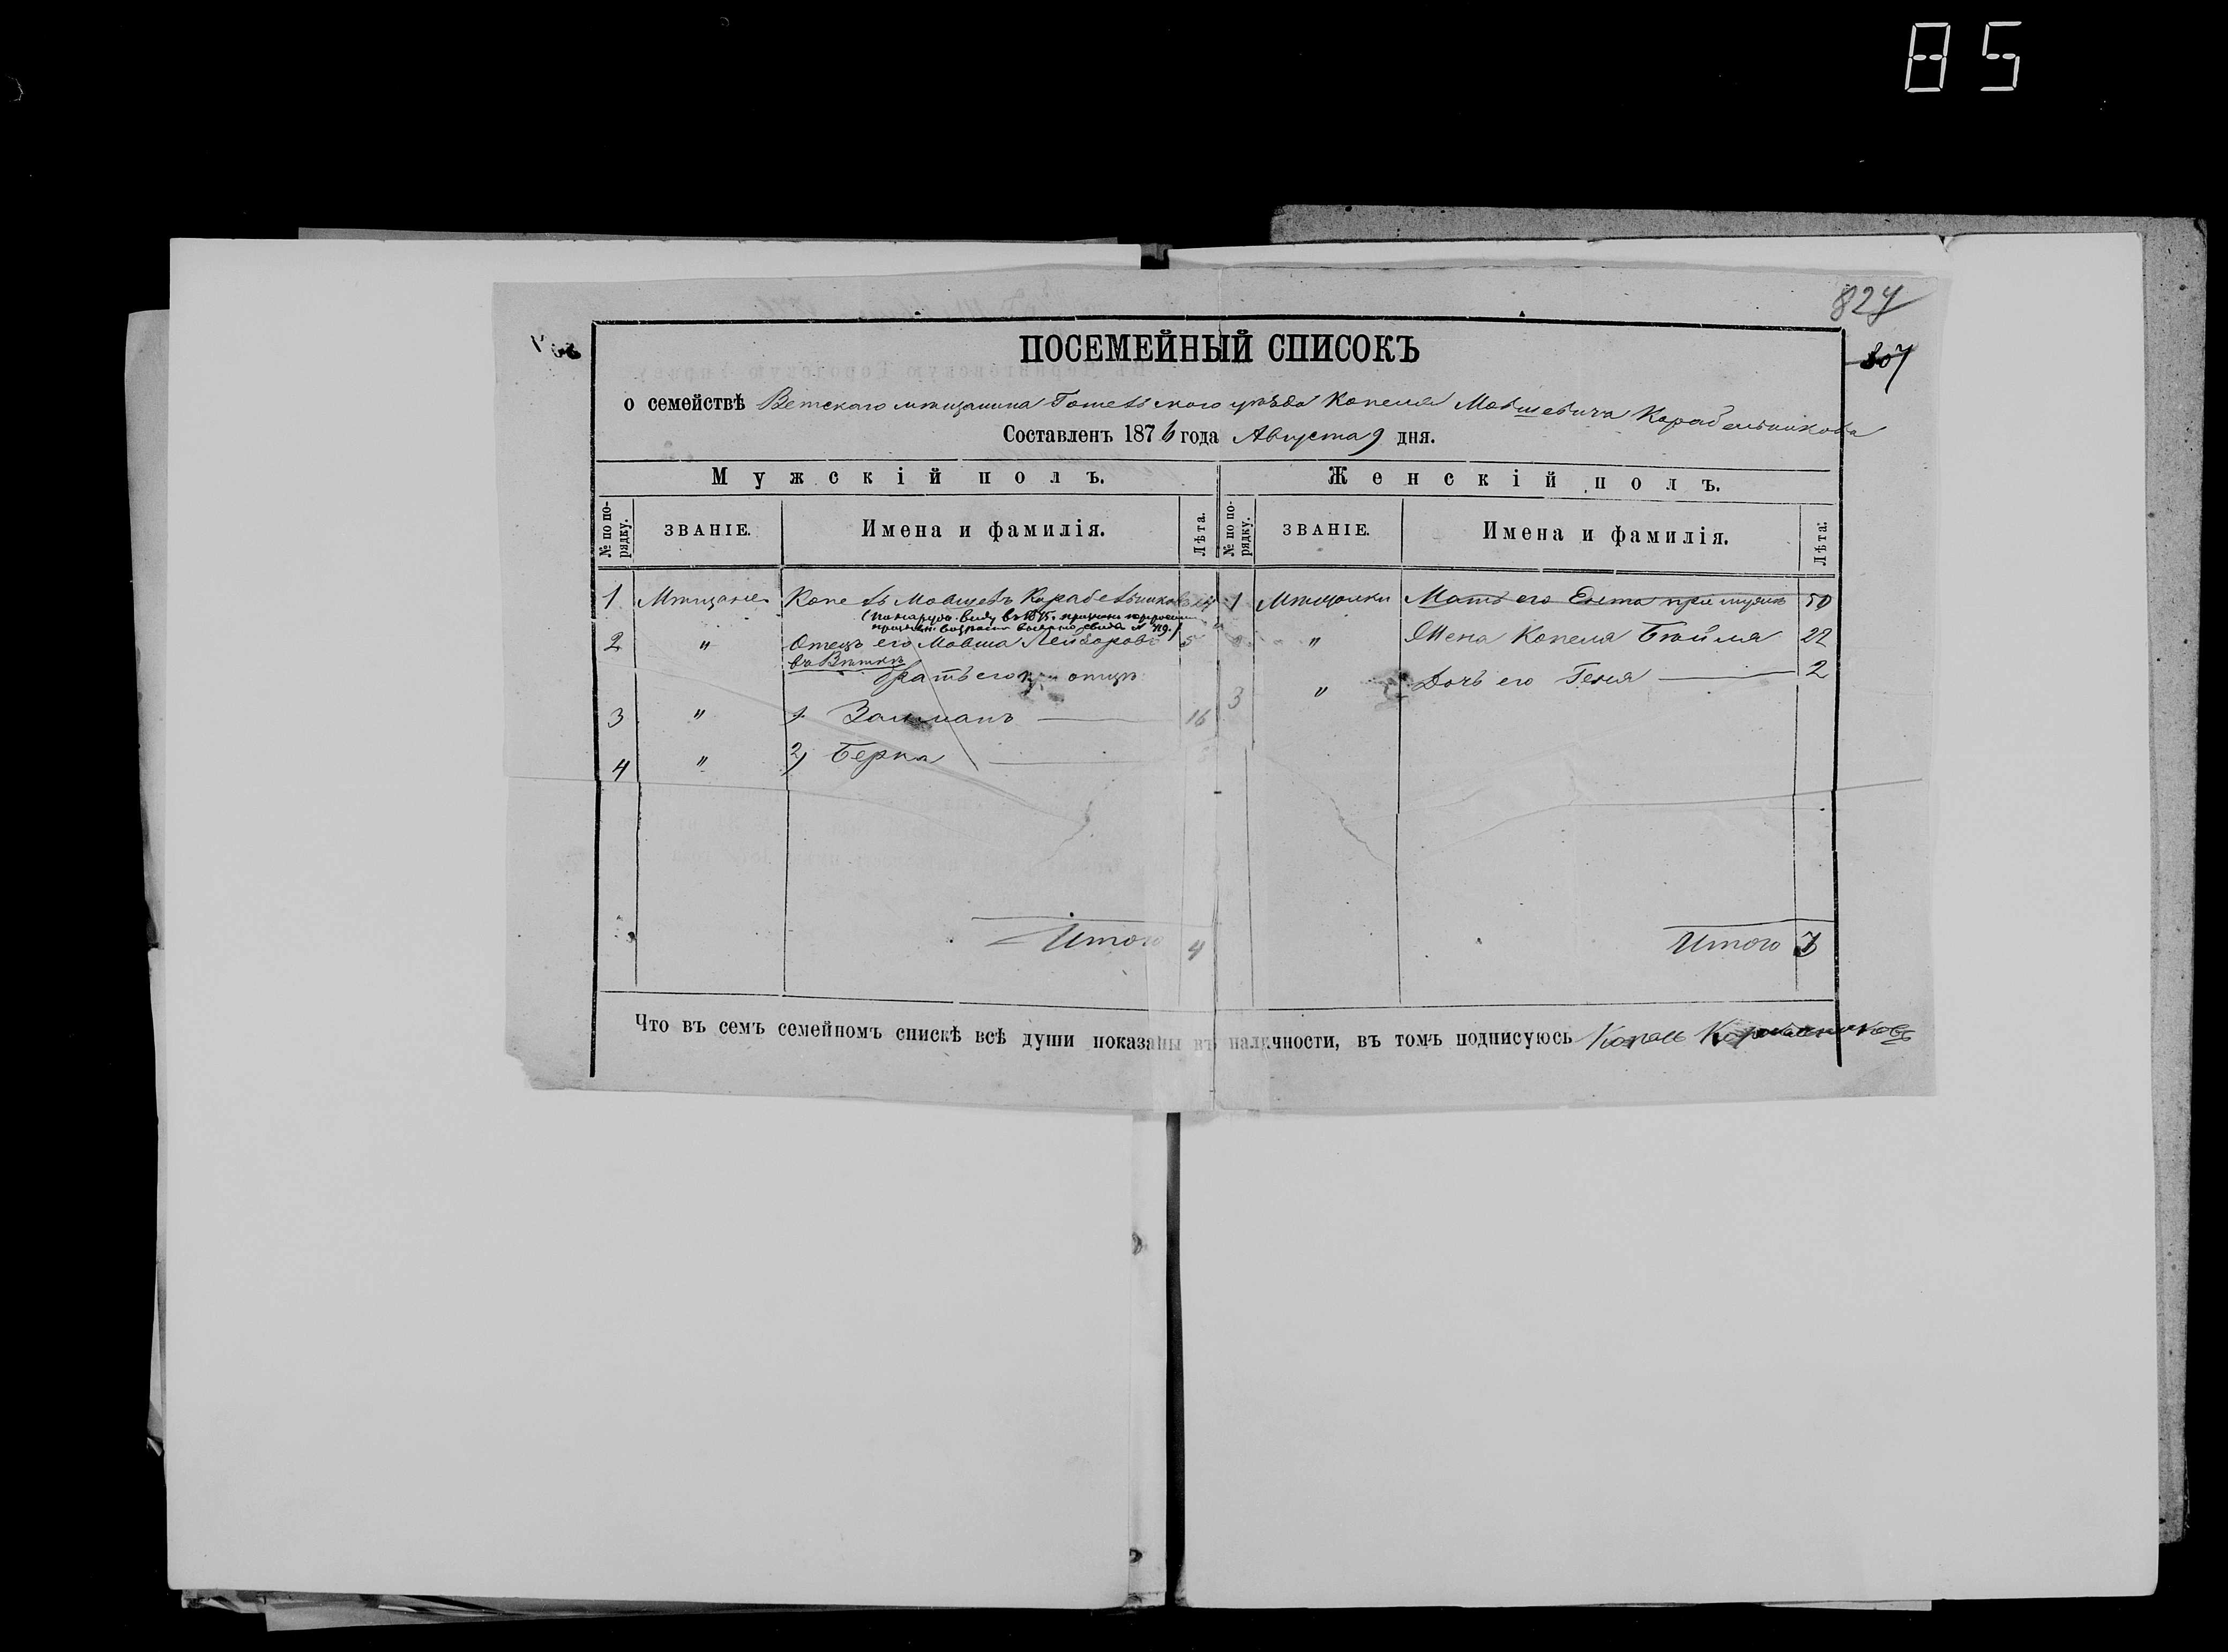 85
827
307
ПОСЕМЕЙНЫЙ СПИСОКЪ
о семействѣ Ветскаго мѣщанина Гомельскаго уѣзда Копеля Мовшевича Карабельникова
Составленъ 1876 года Августа 9 дня.
Мужскій полъ. Женскій полъ.
№ по порядку. ЗВАНІЕ. Имена и фамилія. Лѣта. № по порядку. ЗВАНІЕ. Имена и фамилія. Лѣта.
1 Мѣщане Копель Мовшевъ 1 Мѣщанки Мать его Ента при мужѣ 50
(по наруж. виду въ 1875 г.
возраста № 119.)
2 " Отецъ его Мовша Лейзоровъ 5 " Жена Копеля Бейля 22
въ Вѣткѣ
братья его при отцѣ 3 " Дочь его Геня 2
3 " 1. Залманъ 16
4 " 2) Берка
Итого 4 Итого 3
Что въ семъ семейномъ спискѣ всѣ души показаны въ наличности, въ томъ подписуюсь Копель Карабельниковъ